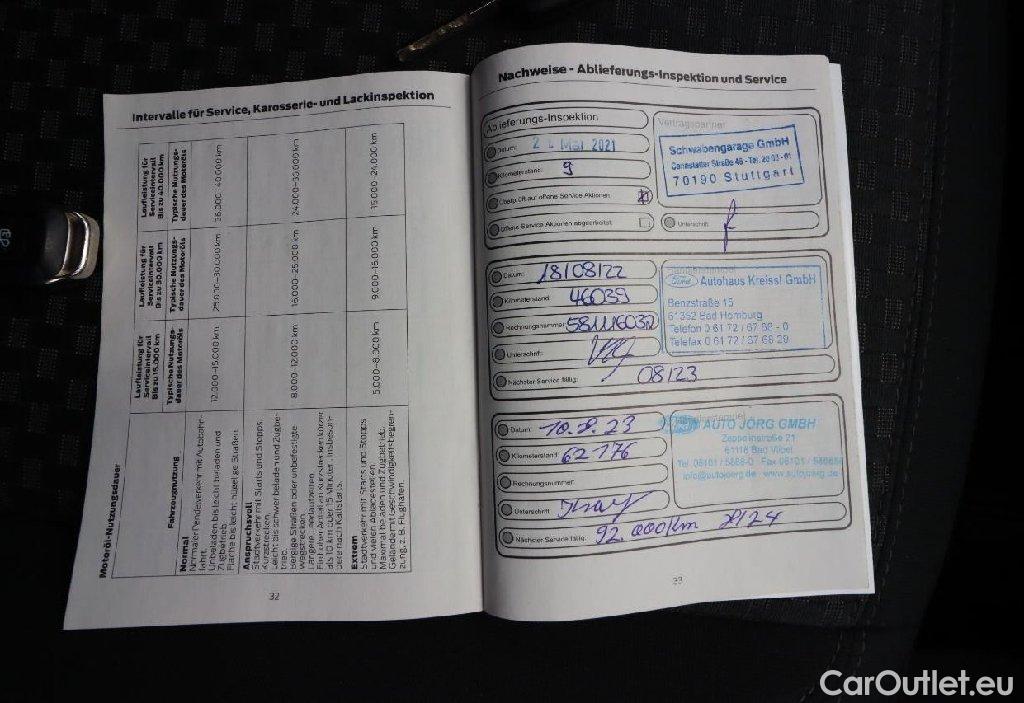 Intervalle für Service, Karosserie- und Lackinspektion
Motoröl-Nutzungsdauer
Fahrzeugnutzung
Laufleistung für
Serviceintervall
Bis zu 15.000 km
Typische Nutzungs-
dauer des Motoröls
Laufleistung für
Serviceintervall
Bis zu 30.000 km
Typische Nutzungs-
dauer des Motoröls
Laufleistung für
Serviceintervall
Bis zu 40.000 km
Typische Nutzungs-
dauer des Motoröls
Normal
Normaler Pendelverkehr mit Autobahn-
fahrt.
Unbeladen bis leicht beladen und
Zugbetrieb.
Flache bis leicht hügelige Straßen.
12.000–15.000 km
25.000–30.000 km
36.000–40.000 km
Anspruchsvoll
Stadtverkehr mit Starts und Stopps,
Kurzstrecken.
Leicht bis schwer beladen und Zugbe-
trieb.
Bergige Straßen oder unbefestigte
Wegstrecken.
Längere Leerlaufzeiten
8.000–12.000 km
16.000–25.000 km
24.000–35.000 km
Extrem
Stadtverkehr mit Starts und Stopps
und vielen
Maximal beladen und Zugbetrieb.
zung, z. B. Flughäfen.
5.000–8.000 km
9.000–15.000 km
15.000–24.000 km
32
Nachweise - Ablieferungs-Inspektion und Service
Ablieferungs-Inspektion
Datum: MAI 2021
Kilometerstand: 9
Überprüft auf offene Service Aktionen
Offene Service Aktionen abgearbeitet
Vertragspartner
Schwabengarage GmbH
70190 Stuttgart
Unterschrift
Datum: 18/08/22
Kilometerstand: 46039
Rechnungsnummer:
Unterschrift:
Nächster Service fällig: 08/23
Ford Autohaus Kreissl GmbH
Benzstraße 15
61352 Bad Homburg
Telefon 0 61 72 /
Telefax 0 61 72 /
Datum: 10.8.23
Kilometerstand: 62176
Rechnungsnummer:
Unterschrift:
Nächster Service fällig: 92.000km 8/24
AUTO JÖRG GMBH
Zeppelinstraße 21
61118 Bad Vilbel
33
CarOutlet.eu